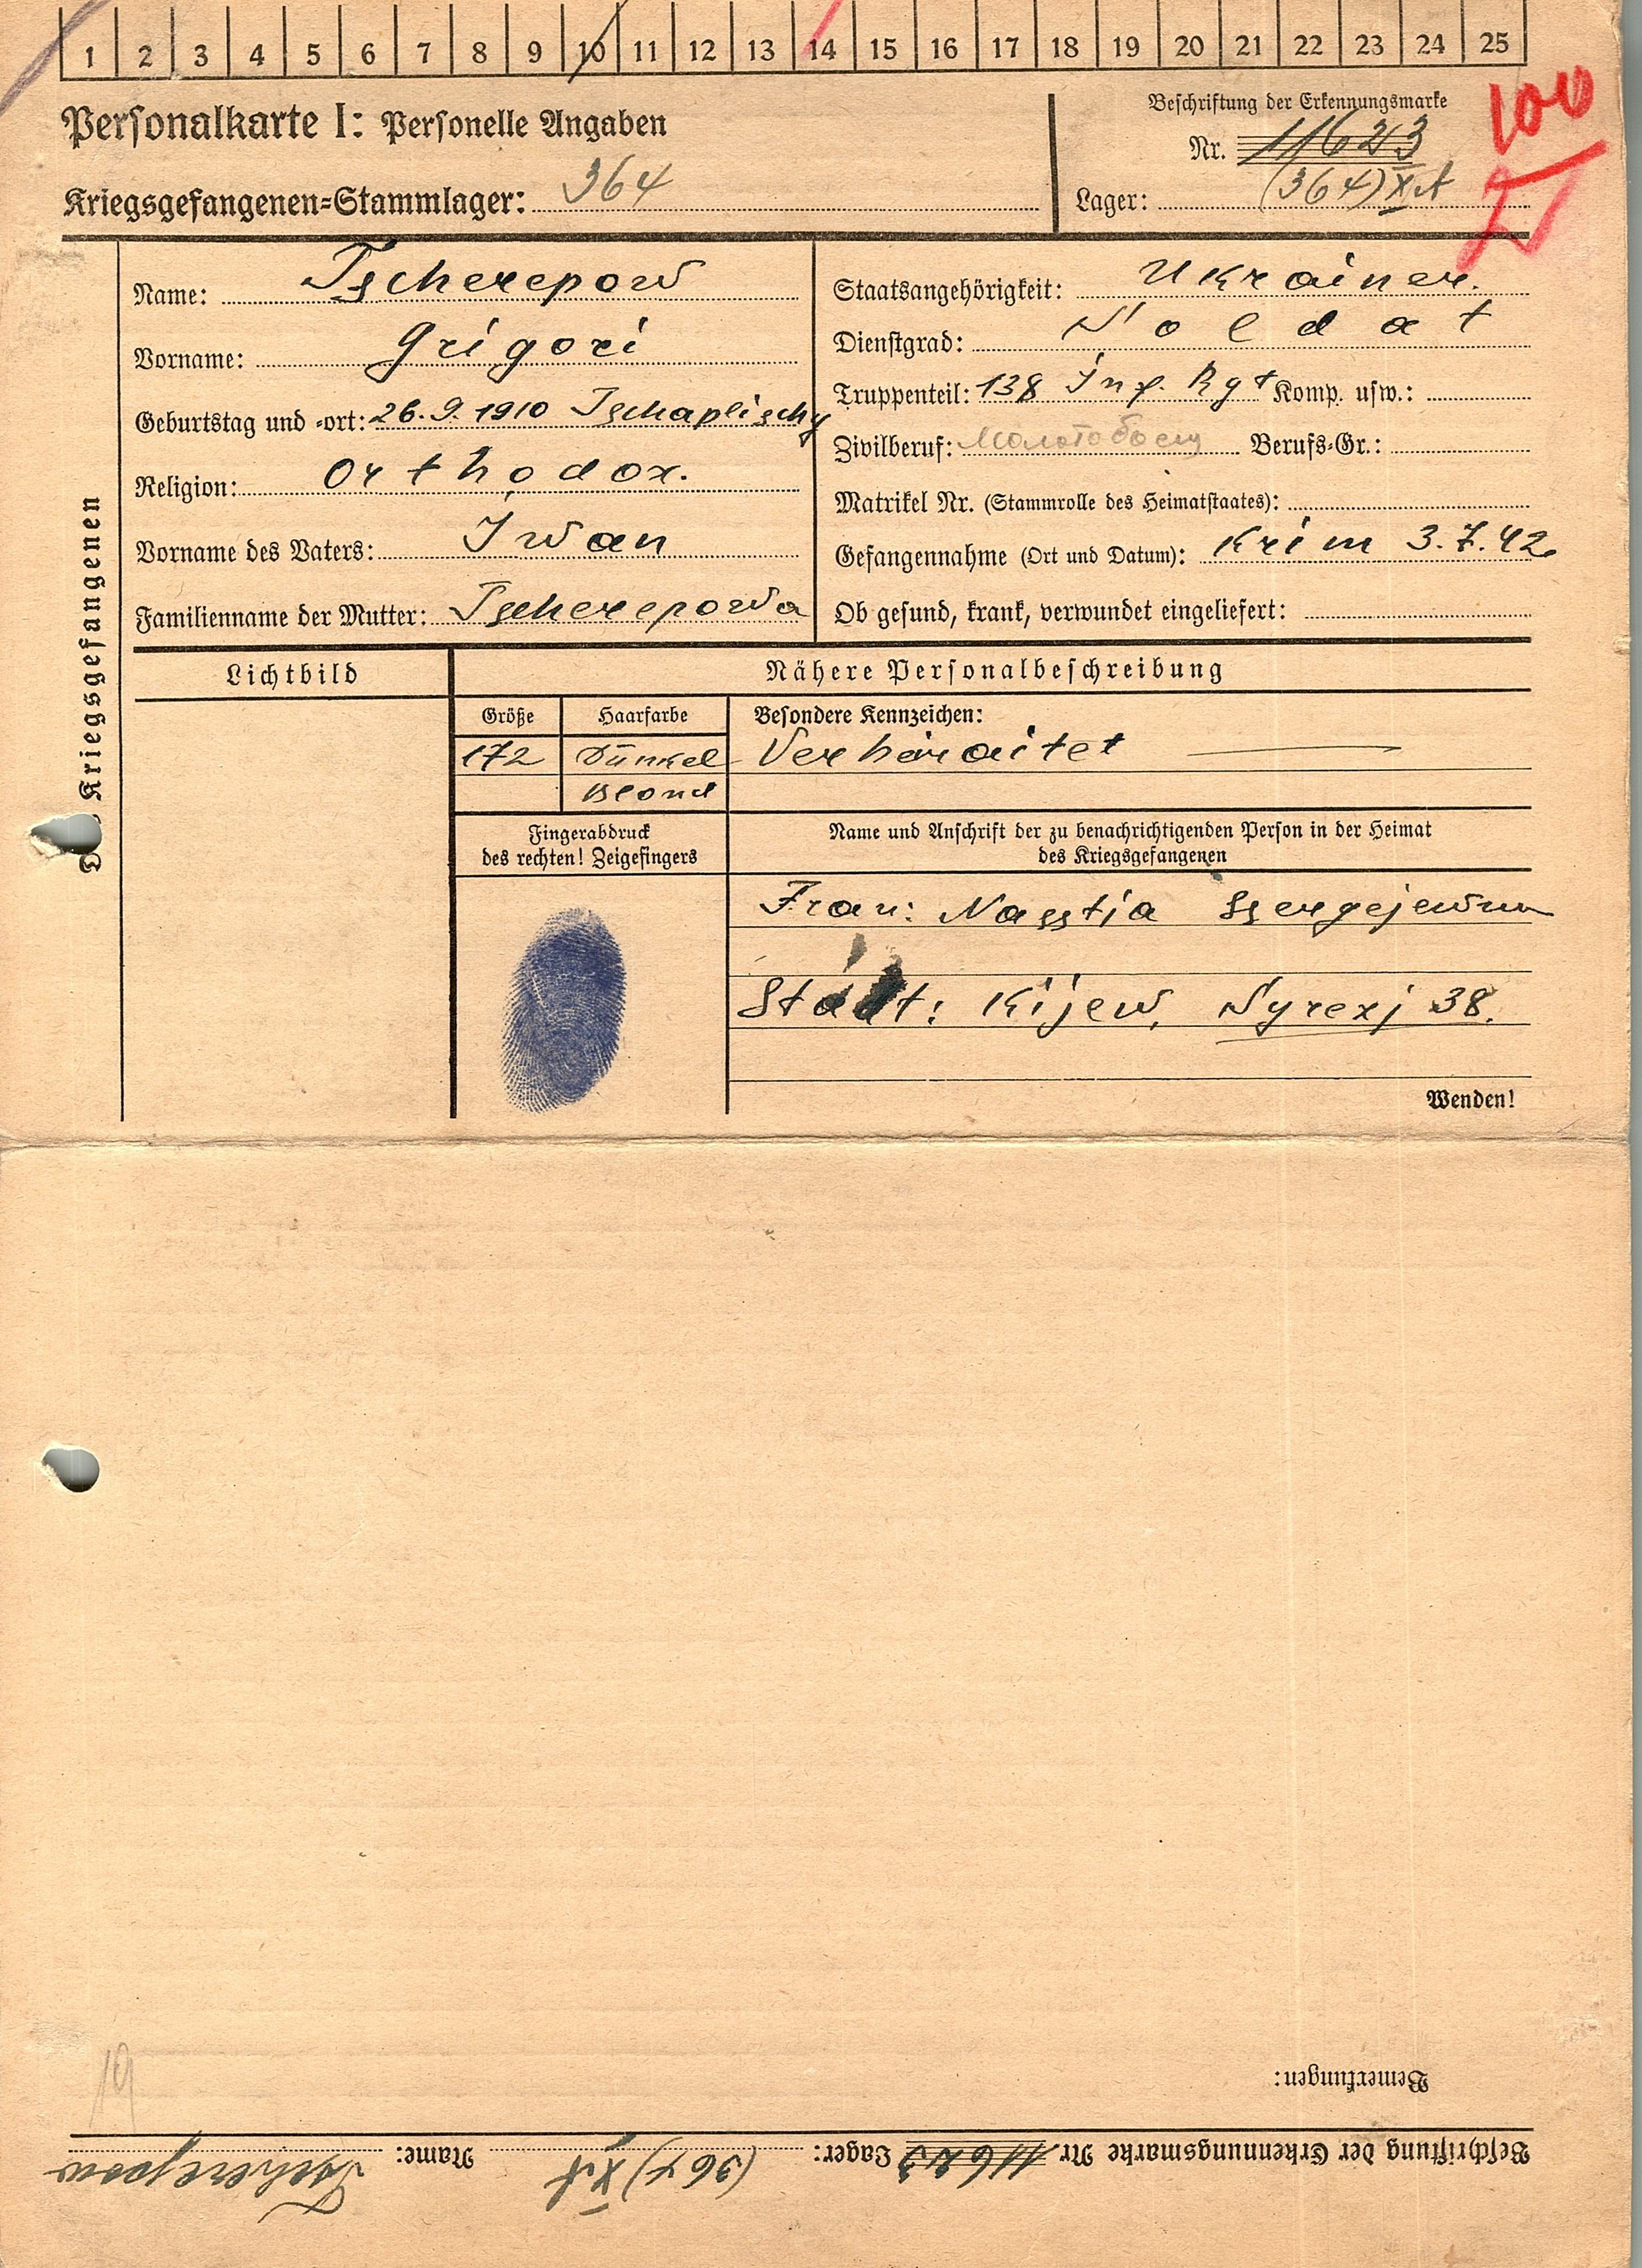 1 2 3 4 5 6 7 8 9 10 11 12 13 14 15 16 17 18 19 20 21 22 23 24 25
Personalkarte I: Personelle Angaben
Kriegsgefangenen-Stammlager: 364
Beschriftung der Erkennungsmarke
Nr. 11623
Lager: (364) X A
100
Des Kriegsgefangenen
Name: Tscherepow
Vorname: Grigori
Geburtstag und -ort: 26.9.1910 Tschaplischy
Religion: Orthodox.
Vorname des Vaters: Iwan
Familienname der Mutter: Tscherepowa
Staatsangehörigkeit: Ukrainer.
Dienstgrad: Soldat
Truppenteil: 138 Inf. Rgt Komp. usw.:
Zivilberuf: Молотобоец Berufs-Gr.:
Matrikel Nr. (Stammrolle des Heimatstaates):
Gefangennahme (Ort und Datum): Krim 3.7.42
Ob gesund, krank, verwundet eingeliefert:
Lichtbild
Nähere Personalbeschreibung
Größe Haarfarbe Besondere Kennzeichen:
172 Dunkel Verhäraitet
Blond
Fingerabdruck
des rechten! Zeigefingers
Name und Anschrift der zu benachrichtigenden Person in der Heimat
des Kriegsgefangenen
Frau: Nasstja Ssergejewna
Stadt: Kijew, Syrezj 38.
Wenden!
Bemerkungen:
19
Beschriftung der Erkennungsmarke Nr. 11623 Lager: (364) X A Name: Tscherepow